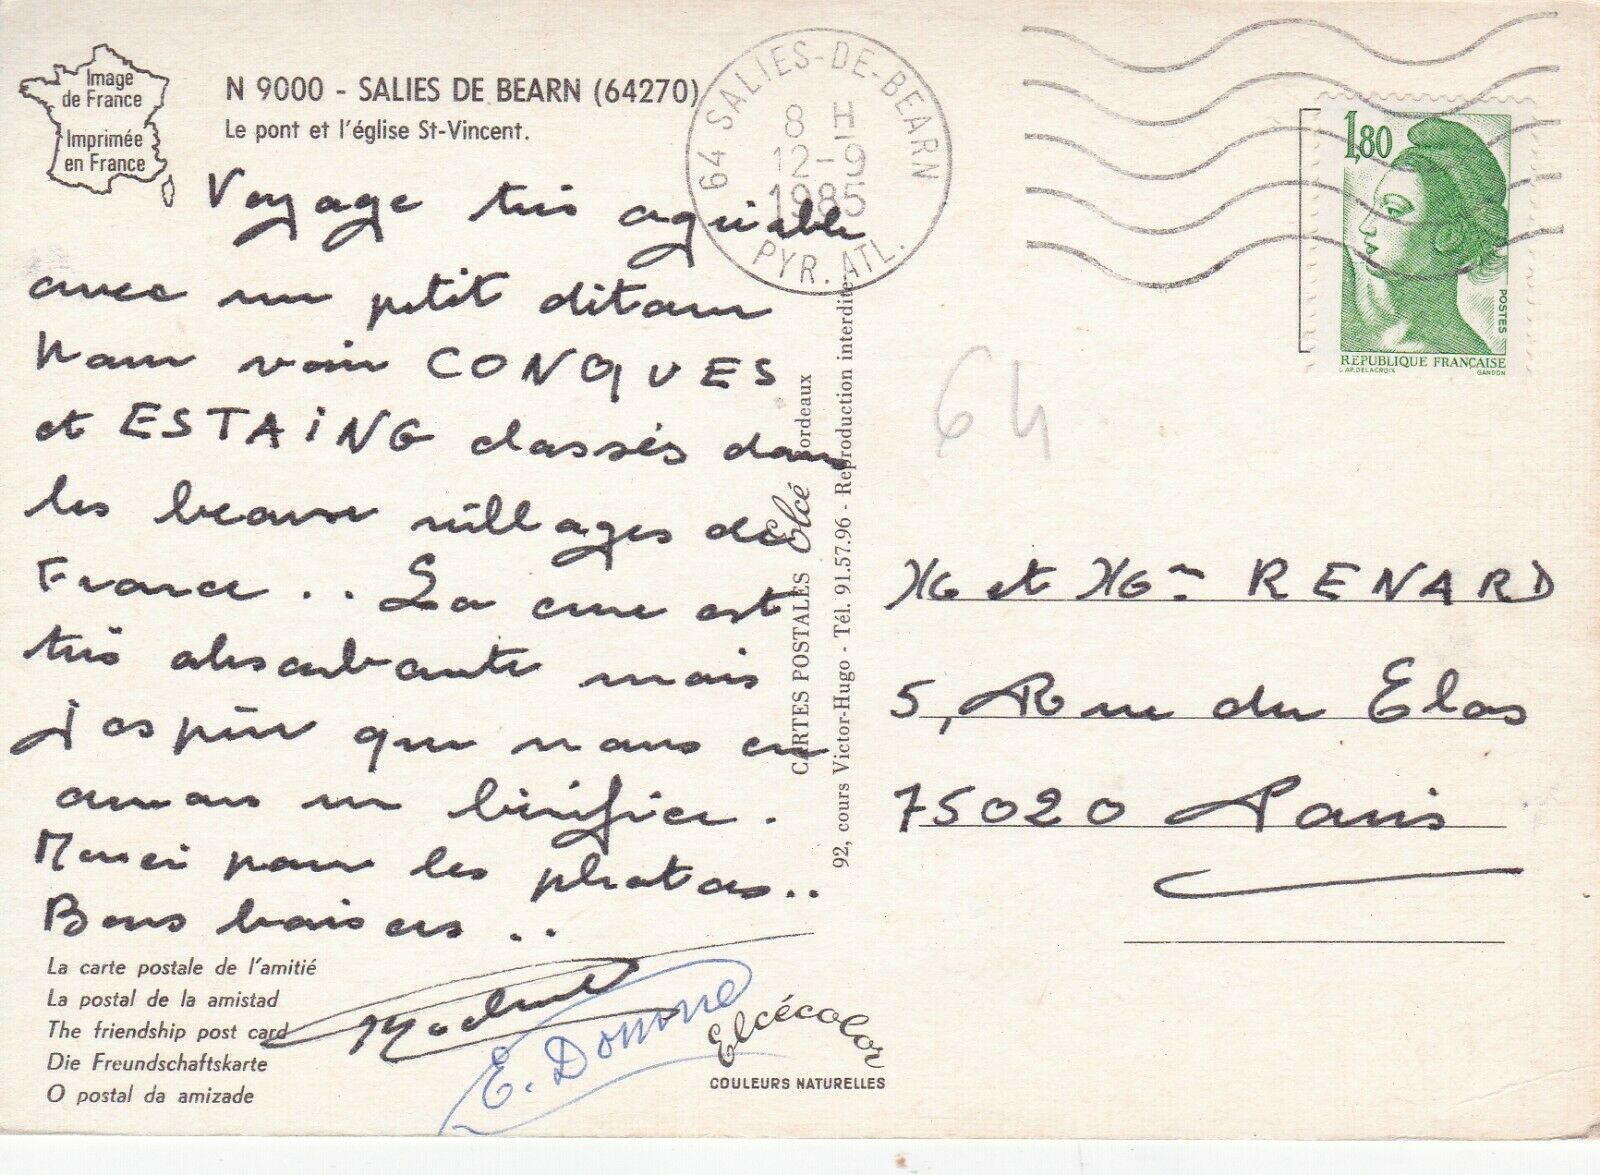 Image
de France
Imprimée
en France
N 9000 - SALIES DE BEARN (64270)
Le pont et l'église St-Vincent.
Voyage très agréable
avec un petit détour
pour voir CONQUES
et ESTAiNG classés dans
les beaux villages de
France.. La cure est
très absorbante mais
j'espère que nous en
aurons un bénéfice.
Merci pour les photos..
Bons baisers ..
E. Donnne
La carte postale de l'amitié
La postal de la amistad
The friendship post card
Die Freundschaftskarte
O postal da amizade
Elcécolor
COULEURS NATURELLES
CARTES POSTALES Elcé ordeaux
92, cours Victor-Hugo - Tél. 91.57.96 - Reproduction interdite
64 SALIES-DE-BEARN
8 H
12-9
1985
PYR. ATL.
1,80
POSTES
REPUBLIQUE FRANÇAISE
D'AP. DELACROIX
GANDON
64
et RENARD
5, Rue du Clos
75020 Paris